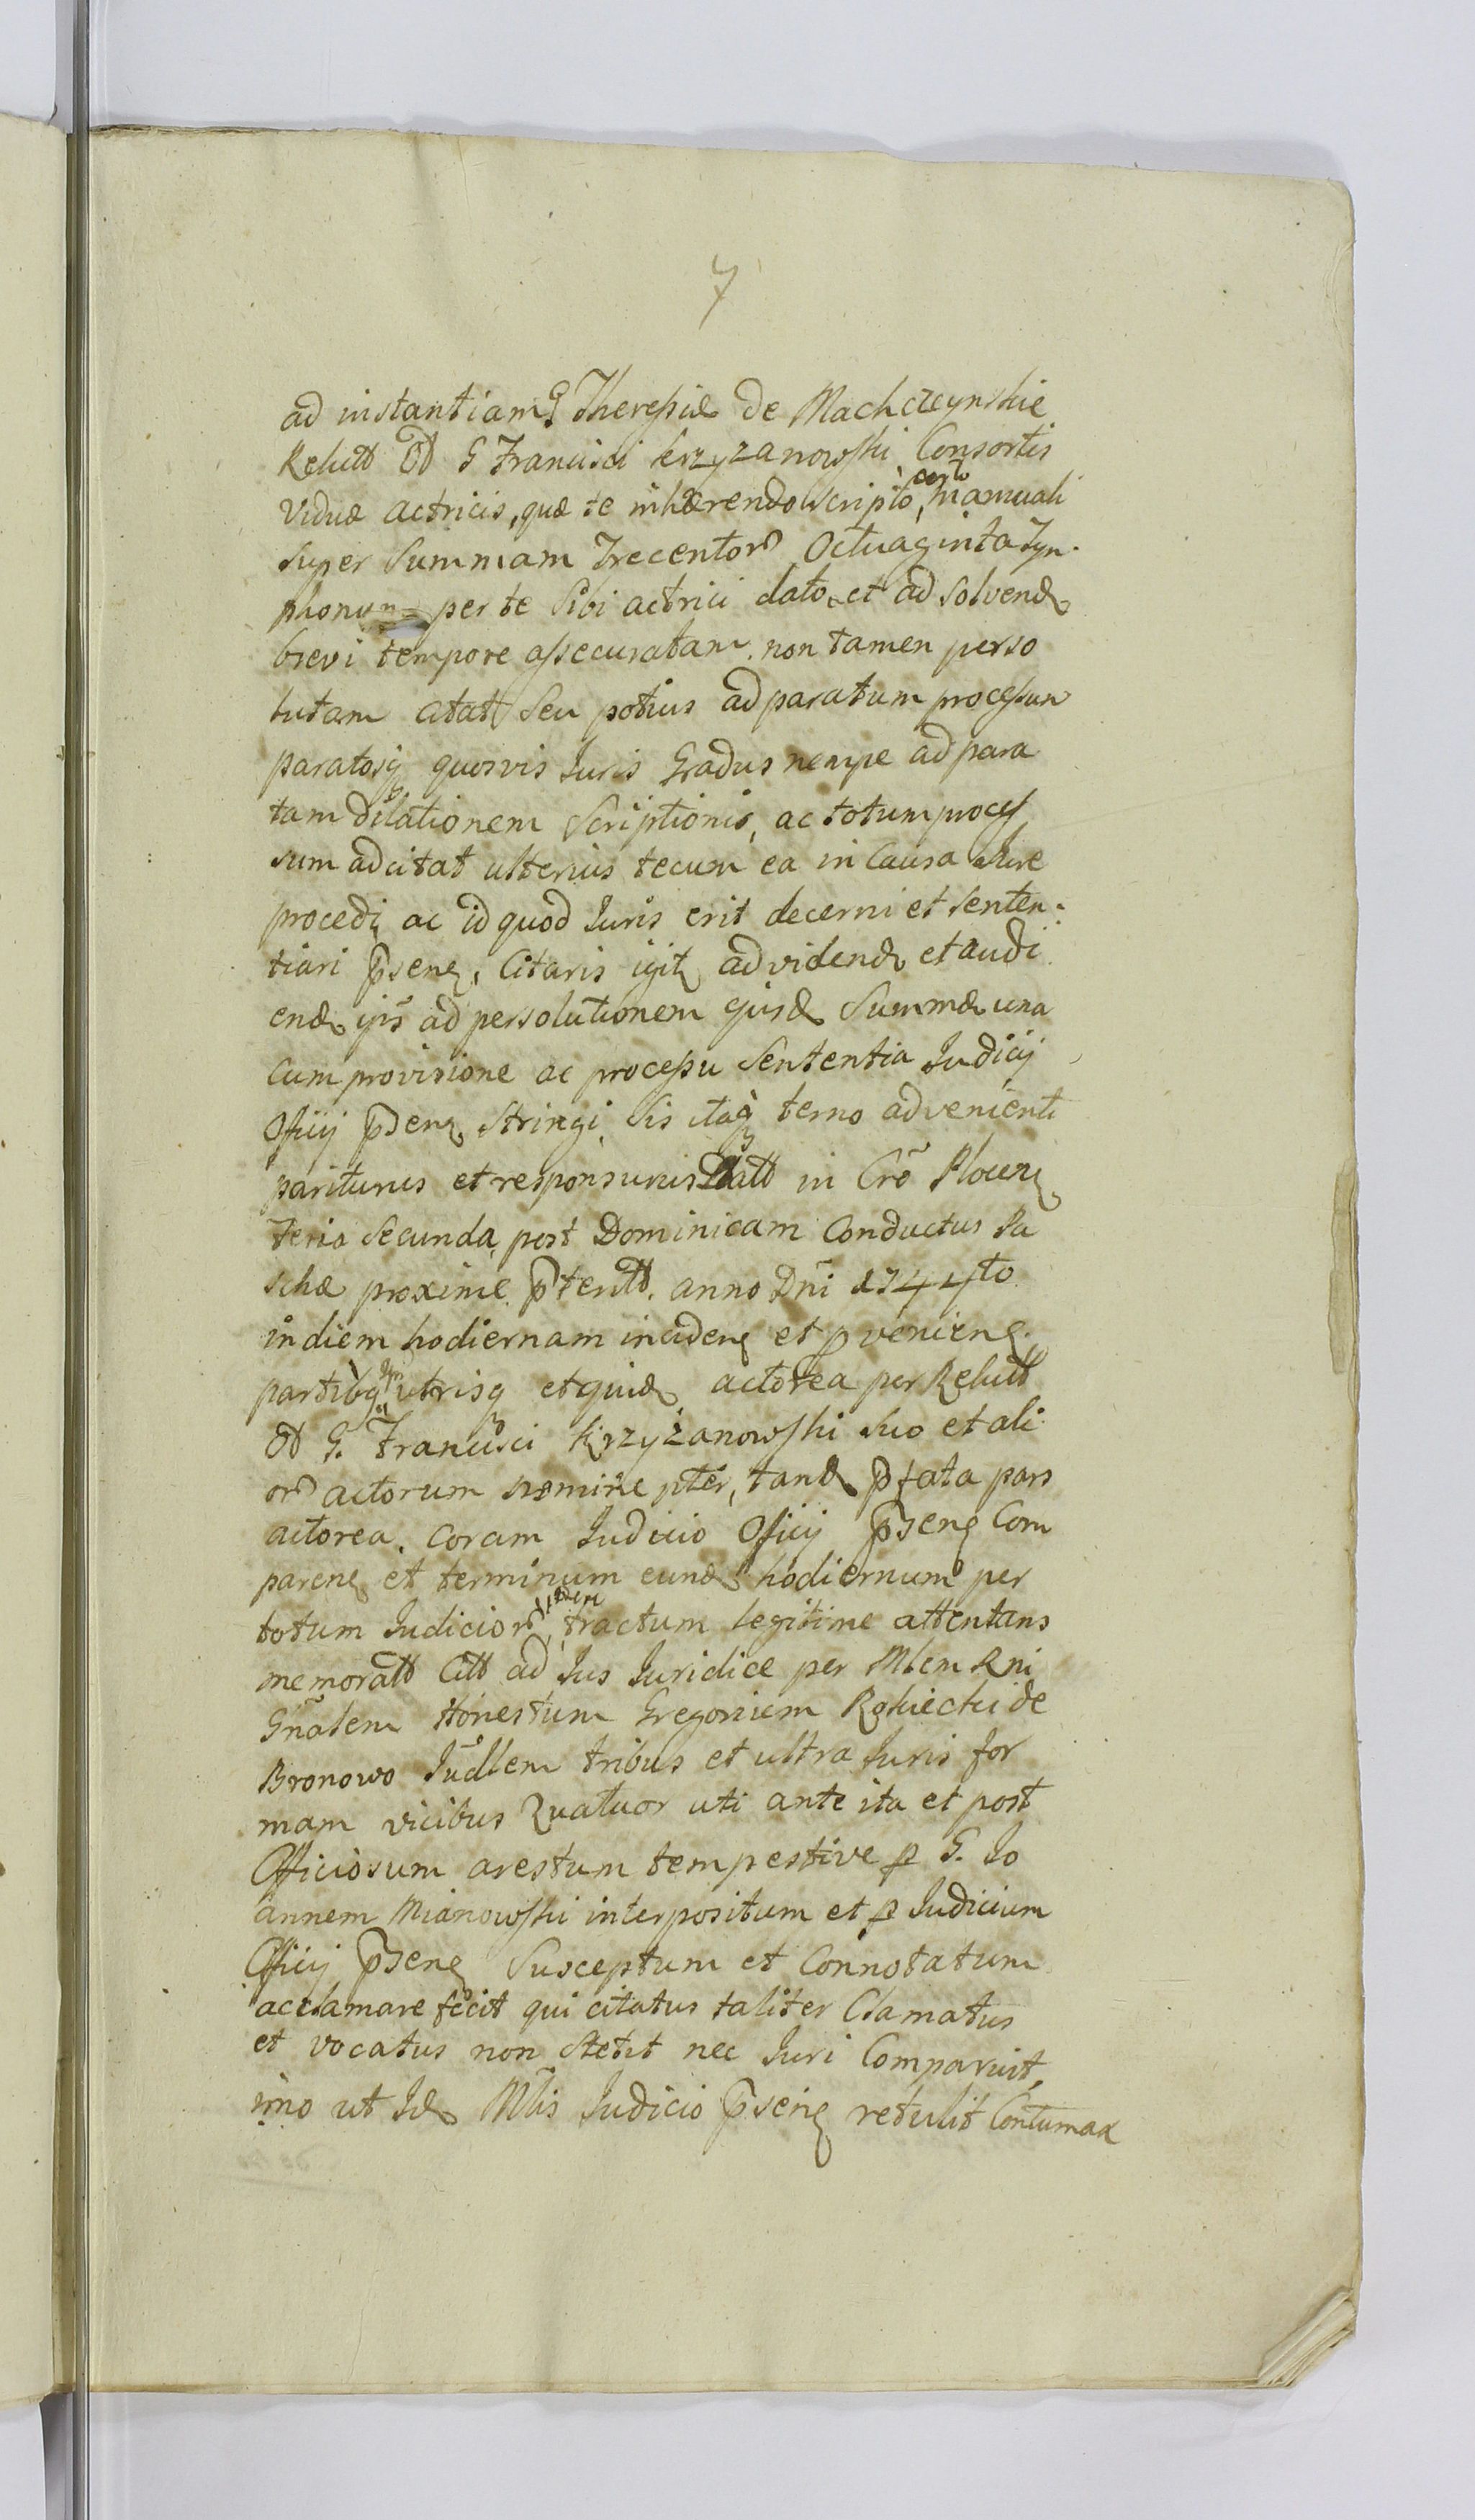 7
ad instantiam G Theresiæ de Machczynskie
Relictt Od G Francisci Krzyzanowski Consortis
Viduæ actricis, quæ te inhærendo scripto certo manuali
super Summam Trecentor Octuaginta Tyn-
phonum per te sibi actrici dato et ad solvend
brevi tempore assecuratam non tamen perso
lutam citat Seu potius ad paratum processum
paratosq quosvis Juris Gradus nempe ad para
tam dilationem Scriptionis, ac totum proces
sum adcitat ulterius tecum ea in Causa Jure
procedi ac id quod Juris erit decerni et senten-
tiari pseng, Citaris igit ad vidend et audi
end ips ad persolutionem ejusd Summæ una
Cum provisione ac processu Sententia Judicij
Officij pseng Stringi Sis itaq termo advenienti
pariturus et responsurus Datt in Cro Plocen
Feria Secunda post Dominicam Conductus Pa
schæ proxime pteritt. anno Dni 1744to
in diem hodiernam incideng et p venieng.
partibq utrisq et quid actorea per Relictt
Od G. Francisci Krzyżanowski suo et ali
or actorum nomine pter, tand pfata pars
actorea. coram Judicio Officij pseng Com
pareng et terminum eund hodiernum per
totum Judicior tractum legitime attentans
memoratt Citt ad Jus Juridice per Mlem Rni
Gnalem Honestum Gregorium Rokiecki de
Bronowo Judlem tribus et ultra Juris for
mam vicibus Quatuor uti ante ita et post
Officiosum arestum tempestive p G. Jo
annem Mianowski interpositum et p Judicium
Officij pseng Susceptum et Connotatum
acclamare fecit qui citatus taliter Clamatus
et vocatus non Stetit nec Juri Comparuit,
imo ut Id Mlis Judicio pseng retulit Contumax